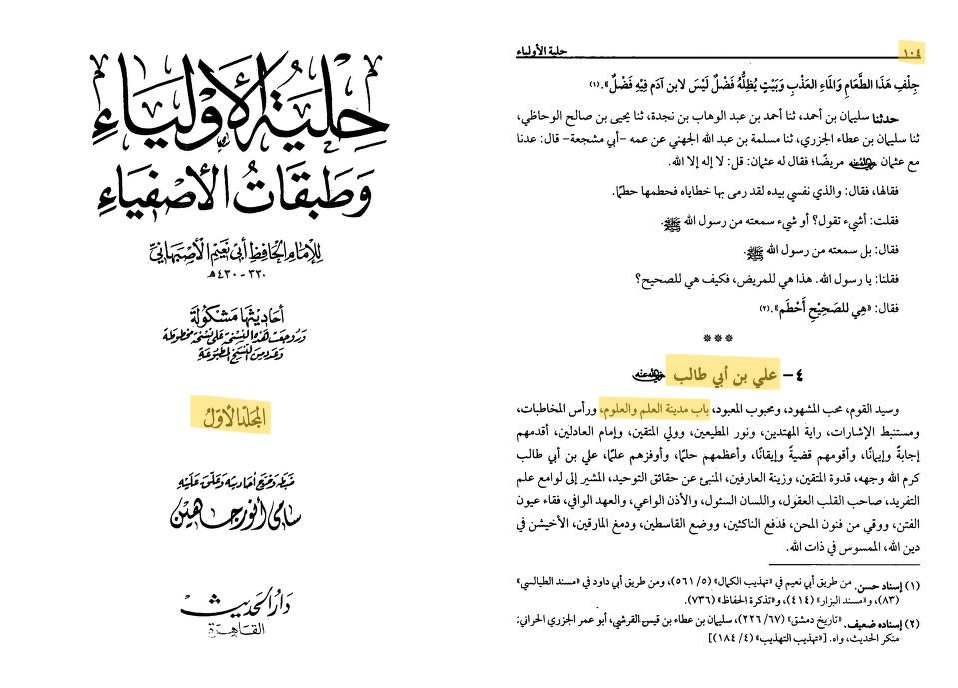 حلية الأولياء
وطبقات الأصفياء
للإمام الحافظ أبي نعيم الأصبهاني
٣٢٠ - ٤٣٠ هـ
أحاديثها مشكولة
وروجعت هذه النسخة على نسخة مخطوطة
وعدد من النسخ المطبوعة
المجلد الأول
ضبط وخرج أحاديثه وعلق عليه
سامي أنور جاهين
دار الحديث
القاهرة
١٠٤ حلية الأولياء
جِلْفِ هَذَا الطَّعَامِ وَالمَاءِ العَذْبِ وَبَيْتٍ يُظِلُّهُ فَضْلٌ لَيْسَ لابن آدَمَ فِيْهِ فَضْلٌ». (١)
حدثنا سليمان بن أحمد، ثنا أحمد بن عبد الوهاب بن نجدة، ثنا يحيى بن صالح الوحاظي،
ثنا سليمان بن عطاء الجزري، ثنا مسلمة بن عبد الله الجهني عن عمه -أبي مشجعة- قال: عدنا
مع عثمان رضي الله عنه مريضًا؛ فقال له عثمان: قل: لا إله إلا الله.
فقالها، فقال: والذي نفسي بيده لقد رمى بها خطاياه فحطمها حطمًا.
فقلت: أشيء تقول؟ أو شيء سمعته من رسول الله ﷺ.
فقال: بل سمعته من رسول الله ﷺ.
فقلنا: يا رسول الله. هذا هي للمريض، فكيف هي للصحيح؟
فقال: «هِي للصَحِيْحِ أَحْطَم». (٢)
***
٤- علي بن أبي طالب رضي الله عنه
وسيد القوم، محب المشهود، ومحبوب المعبود، باب مدينة العلم والعلوم، ورأس المخاطبات،
ومستنبط الإشارات، راية المهتدين، ونور المطيعين، وولي المتقين، وإمام العادلين، أقدمهم
إجابةً وإيمانًا، وأقومهم قضيةً وإيقانًا، وأعظمهم حلمًا، وأوفزهم علمًا، علي بن أبي طالب
كرم الله وجهه، قدوة المتقين، وزينة العارفين، المنبئ عن حقائق التوحيد، المشير إلى لوامع علم
التفريد، صاحب القلب العقول، واللسان السئول، والأذن الواعي، والعهد الوافي، فقاء عيون
الفتن، ووقي من فنون المحن، فدفع الناكثين، ووضع القاسطين، ودمغ المارقين، الأخيشن في
دين الله، الممسوس في ذات الله.
(١) إسناد حسن. من طريق أبي نعيم في «تهذيب الكمال» (٥/ ٥٦١)، ومن طريق أبي داود في «مسند الطيالسي»
(٨٣)، و«مسند البزار» (٤١٤)، و«تذكرة الحفاظ» (٧٣٦).
(٢) إسناده ضعيف. «تاريخ دمشق» (٦٧/ ٢٢٦)، سليمان بن عطاء بن قيس القرشي، أبو عمر الجزري الحراني:
منكر الحديث، واه. [«تهذيب التهذيب» (٤/ ١٨٤)]